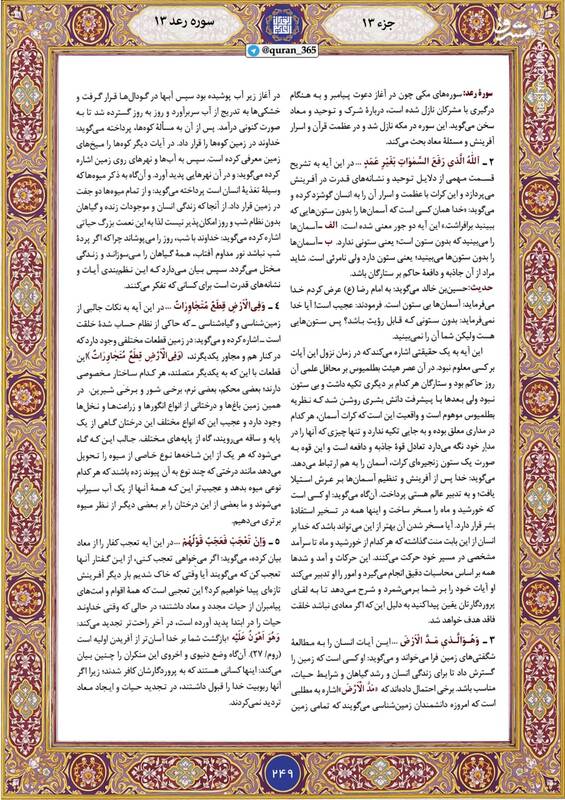 جزء ۱۳
سوره رعد ۱۳
@quran_365
مشرق
سورهٔ رعد: سوره‌های مکی چون در آغاز دعوت پیامبر و به هنگام
درگیری با مشرکان نازل شده است، دربارهٔ شرک و توحید و معاد
سخن می‌گوید. این سوره در مکه نازل شد و در عظمت قرآن و اسرار
آفرینش و مسئلهٔ معاد بحث می‌کند.
۲ ـ اَللَّهُ الَّذي رَفَعَ السَّمٰوٰتِ بِغَيْرِ عَمَدٍ ... در این آیه به تشریح
قسمت مهمی از دلایل توحید و نشانه‌های قدرت در آفرینش
می‌پردازد و این کرات با عظمت و اسرار آن را به انسان گوشزد کرده و
می‌گوید: «خدا همان کسی است که آسمان‌ها را بدون ستون‌هایی که
ببینید برافراشت» این آیه دو جور معنی شده است: الف ـ آسمان‌ها
را می‌بینید که بدون ستون است؛ یعنی ستونی ندارد. ب ـ آسمان‌ها
را بدون ستون‌ها می‌بینید؛ یعنی ستون دارد ولی نامرئی است. شاید
مراد از آن جاذبه و دافعهٔ حاکم بر ستارگان باشد.
حدیث: حسین‌بن خالد می‌گوید: به امام رضا (ع) عرض کردم خدا
می‌فرماید: آسمان‌ها بی ستون است. فرمودند: عجیب است! آیا خدا
نمی‌فرماید: بدون ستونی که قابل رؤیت باشد؟ پس ستون‌هایی
هست ولیکن شما آن را نمی‌بینید.
این آیه به یک حقیقتی اشاره می‌کند که در زمان نزول این آیات
بر کسی معلوم نبود. در آن عصر هیئت بطلمیوس بر محافل علمی آن
روز حاکم بود و ستارگان هر کدام بر دیگری تکیه داشت و بی ستون
نبود ولی بعدها با پیشرفت دانش بشری روشن شد که نظریه
بطلمیوس موهوم است و واقعیت این است که کرات آسمان، هر کدام
در مداری معلق بوده و به جایی تکیه ندارد و تنها چیزی که آنها را در
مدار خود نگه می‌دارد تعادل قوهٔ جاذبه و دافعه است و این قوه به
صورت یک ستون زنجیره‌ای کرات، آسمان را به هم ارتباط می‌دهد.
می‌گوید: خدا پس از آفرینش و تنظیم آسمان‌ها بر عرش استیلا
یافت؛ و به تدبیر عالم هستی پرداخت. آن‌گاه می‌گوید: او کسی است
که خورشید و ماه را مسخر ساخت و اینها همه در تسخیر استفادهٔ
بشر قرار دارد. آیا مسخر شدن آن بهتر از این می‌تواند باشد که خدا بر
انسان از این بابت منت گذاشته که هر کدام از خورشید و ماه تا سرآمد
مشخصی در مسیر خود حرکت می‌کنند. این حرکات و آمد و شدها
همه بر اساس محاسبات دقیق انجام می‌گیرد و امور را او تدبیر می‌کند
او آیات خود را بر شما برمی‌شمرد و شرح می‌دهد تا به لقای
پروردگارتان یقین پیدا کنید به دلیل این که اگر معادی نباشد خلقت
فاقد هدف خواهد شد.
۳ ـ وَ هُوَ الَّذي مَدَّ الْاَرْضَ ... این آیات انسان را به مطالعهٔ
شگفتی‌های زمین فرا می‌خواند و می‌گوید: او کسی است که زمین را
گسترش داد تا برای زندگی انسان و رشد گیاهان و شرایط حیات،
مناسب باشد. برخی احتمال داده‌اند که «مَدَّ الْاَرْضَ» اشاره به مطلبی
است که امروزه دانشمندان زمین‌شناسی می‌گویند که تمامی زمین
در آغاز زیر آب پوشیده بود سپس آبها در گودال‌ها قرار گرفت و
خشکی‌ها به تدریج از آب سربرآورد و روز به روز گسترده شد تا به
صورت کنونی درآمد. پس از آن به مسألهٔ کوه‌ها، پرداخته می‌گوید:
خداوند در زمین کوه‌ها را قرار داد. در آیات دیگر کوه‌ها را میخ‌های
زمین معرفی کرده است. سپس به آب‌ها و نهرهای روی زمین اشاره
کرده می‌گوید: و در آن نهرهایی پدید آورد. و آن‌گاه به ذکر میوه‌ها که
وسیلهٔ تغذیهٔ انسان است پرداخته می‌گوید: و از تمام میوه‌ها دو جفت
در زمین قرار داد. از آنجا که زندگی انسان و موجودات زنده و گیاهان
بدون نظام شب و روز امکان‌پذیر نیست لذا به این نعمت بزرگ حیاتی
اشاره کرده می‌گوید: خداوند با شب، روز را می‌پوشاند چرا که اگر پردهٔ
شب نباشد نور مداوم آفتاب، همهٔ گیاهان را می‌سوزاند و زندگی
مختل می‌گردد. سپس بیان می‌دارد که این نظم‌بندی آیات و
نشانه‌های قدرت است برای کسانی که تفکر می‌کنند.
۴ ـ وَفِي الْاَرْضِ قِطَعٌ مُتَجاوِراتٌ ... در این آیه به نکات جالبی از
زمین‌شناسی و گیاه‌شناسی ـ که حاکی از نظام حساب شدهٔ خلقت
است ـ اشاره کرده و می‌گوید: در زمین قطعات مختلفی وجود دارد که
در کنار هم و مجاور یکدیگرند، (وَفِي الْاَرْضِ قِطَعٌ مُتَجاوِراتٌ) این
قطعات با این که به یکدیگر متصلند، هر کدام ساختار مخصوصی
دارند؛ بعضی محکم، بعضی نرم، برخی شور و برخی شیرین. در
همین زمین باغ‌ها و درختانی از انواع انگورها و زراعت‌ها و نخل‌ها
وجود دارد و عجیب این که انواع مختلف این درختان گاهی از یک
پایه و ساقه می‌رویند، گاه از پایه‌های مختلف. جالب این که گاه
می‌شود که هر یک از این شاخه‌ها نوع خاصی از میوه را تحویل
می‌دهد مانند درختی که چند نوع به آن پیوند زده باشند که هر کدام
نوعی میوه بدهد و عجیب‌تر این که همهٔ آنها از یک آب سیراب
می‌شوند و ما بعضی از این درختان را بر بعضی دیگر از نظر میوه
برتری می‌دهیم.
۵ ـ وَاِنْ تَعْجَبْ فَعَجَبٌ قَوْلُهُمْ ... در این آیه تعجب کفار را از معاد
بیان کرده، می‌گوید: اگر می‌خواهی تعجب کنی، از این گفتار آنها
تعجب کن که می‌گویند آیا وقتی که خاک شدیم بار دیگر آفرینش
تازه‌ای پیدا خواهیم کرد؟ این تعجبی است که همهٔ اقوام و امت‌های
پیامبران از حیات مجدد و معاد داشتند؛ در حالی که وقتی خداوند
حیات را در ابتدا پدید آورده است، در آخر راحت‌تر تجدید می‌کند:
وَهُوَ اَهْوَنُ عَلَيْهِ «بازگشت شما بر خدا آسان‌تر از آفریدن اولیه است
(روم/ ۲۷). آن‌گاه وضع دنیوی و اخروی این منکران را چنین بیان
می‌کند: اینها کسانی هستند که به پروردگارشان کافر شدند؛ زیرا اگر
آنها ربوبیت خدا را قبول داشتند، در تجدید حیات و ایجاد معاد
تردید نمی‌کردند.
۲۴۹